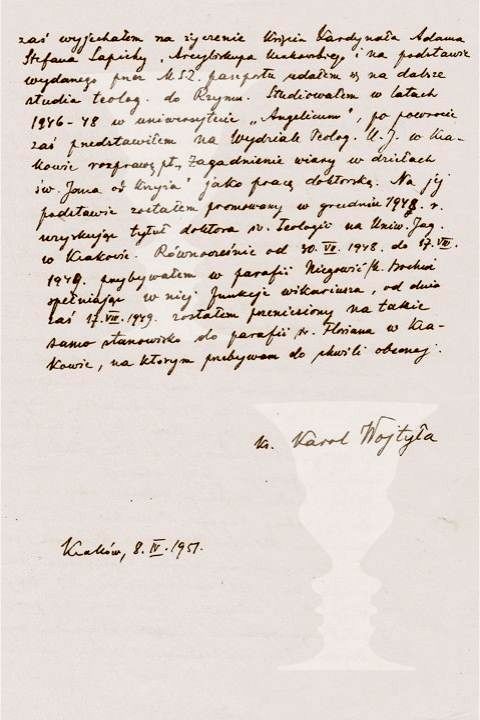 zaś wyjechałem na życzenie Księcia Kardynała Adama
Stefana Sapiehy, Arcybiskupa Krakowskiego, i na podstawie
wydanego przez M.S.Z. paszportu udałem się na dalsze
studia teolog. do Rzymu. Studiowałem w latach
1946-48 w uniwersytecie „Angelicum”, po powrocie
zaś przedstawiłem na Wydziale Teolog. U.J. w Kra-
kowie rozprawę pt. „Zagadnienie wiary w dziełach
św. Jana od Krzyża” jako pracę doktorską. Na jej
podstawie zostałem promowany w grudniu 1948 r.
uzyskując tytuł doktora św. Teologii na Uniw. Jag.
w Krakowie. Równocześnie od 30. VI. 1948. do 17. VIII.
1949 przebywałem w parafii Niegowić k. Bochni
spełniając w niej funkcje wikariusza, od dnia
zaś 17. VIII. 1949. zostałem przeniesiony na takie
samo stanowisko do parafii św. Floriana w Kra-
kowie, na którym przebywam do chwili obecnej.
ks. Karol Wojtyła
Kraków, 8. IV. 1951.